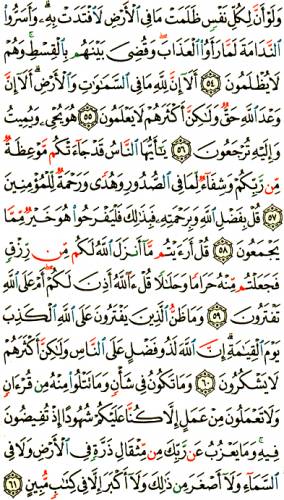 وَلَوْ أَنَّ لِكُلِّ نَفْسٍ ظَلَمَتْ مَا فِي الْأَرْضِ لَافْتَدَتْ بِهِ ۗ وَأَسَرُّوا
النَّدَامَةَ لَمَّا رَأَوُا الْعَذَابَ ۖ وَقُضِيَ بَيْنَهُم بِالْقِسْطِ ۚ وَهُمْ
لَا يُظْلَمُونَ ٥٤ أَلَا إِنَّ لِلَّهِ مَا فِي السَّمَاوَاتِ وَالْأَرْضِ ۗ أَلَا إِنَّ
وَعْدَ اللَّهِ حَقٌّ وَلَٰكِنَّ أَكْثَرَهُمْ لَا يَعْلَمُونَ ٥٥ هُوَ يُحْيِي وَيُمِيتُ
وَإِلَيْهِ تُرْجَعُونَ ٥٦ يَا أَيُّهَا النَّاسُ قَدْ جَاءَتْكُم مَّوْعِظَةٌ
مِّن رَّبِّكُمْ وَشِفَاءٌ لِّمَا فِي الصُّدُورِ وَهُدًى وَرَحْمَةٌ لِّلْمُؤْمِنِينَ
٥٧ قُلْ بِفَضْلِ اللَّهِ وَبِرَحْمَتِهِ فَبِذَٰلِكَ فَلْيَفْرَحُوا هُوَ خَيْرٌ مِّمَّا
يَجْمَعُونَ ٥٨ قُلْ أَرَأَيْتُم مَّا أَنزَلَ اللَّهُ لَكُم مِّن رِّزْقٍ
فَجَعَلْتُم مِّنْهُ حَرَامًا وَحَلَالًا قُلْ آللَّهُ أَذِنَ لَكُمْ ۖ أَمْ عَلَى اللَّهِ
تَفْتَرُونَ ٥٩ وَمَا ظَنُّ الَّذِينَ يَفْتَرُونَ عَلَى اللَّهِ الْكَذِبَ
يَوْمَ الْقِيَامَةِ ۗ إِنَّ اللَّهَ لَذُو فَضْلٍ عَلَى النَّاسِ وَلَٰكِنَّ أَكْثَرَهُمْ
لَا يَشْكُرُونَ ٦٠ وَمَا تَكُونُ فِي شَأْنٍ وَمَا تَتْلُو مِنْهُ مِن قُرْآنٍ
وَلَا تَعْمَلُونَ مِنْ عَمَلٍ إِلَّا كُنَّا عَلَيْكُمْ شُهُودًا إِذْ تُفِيضُونَ
فِيهِ ۚ وَمَا يَعْزُبُ عَن رَّبِّكَ مِن مِّثْقَالِ ذَرَّةٍ فِي الْأَرْضِ وَلَا فِي
السَّمَاءِ وَلَا أَصْغَرَ مِن ذَٰلِكَ وَلَا أَكْبَرَ إِلَّا فِي كِتَابٍ مُّبِينٍ ٦١